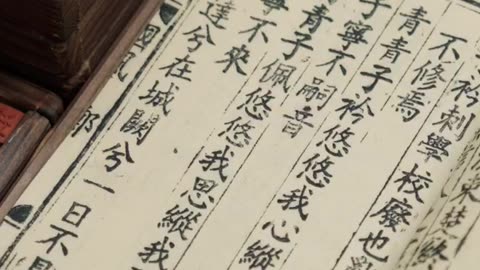 衿刺學校廢也亂
不修焉
青青子衿悠悠我心縱
子寧不嗣音
青子佩悠悠我思縱我
不來
達兮在城闕兮一日不見
國風 鄭